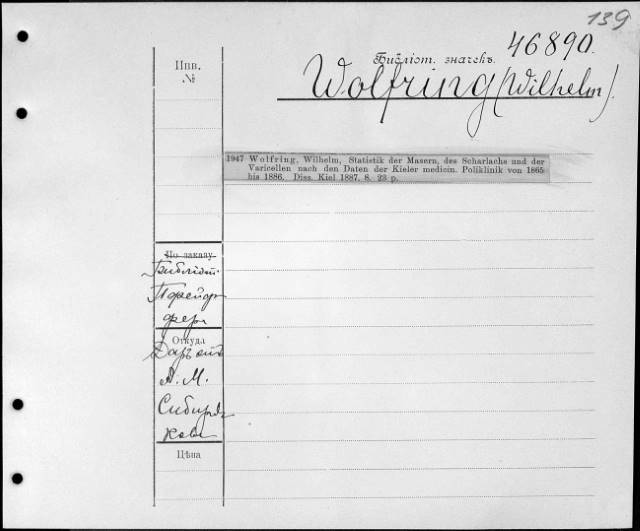 139
46890.
Инв.
№
Библіот. значекъ.
Wolfring (Wilhelm).
1947 Wolfring, Wilhelm, Statistik der Masern, des Scharlachs und der
Varicellen nach den Daten der Kieler medicin. Poliklinik von 1865
bis 1886. Diss. Kiel 1887. 8. 23 p.
По заказу
Библіот.
Порейф
фера
Откуда
Даръ
А. М.
Сибиря
кова
Цѣна